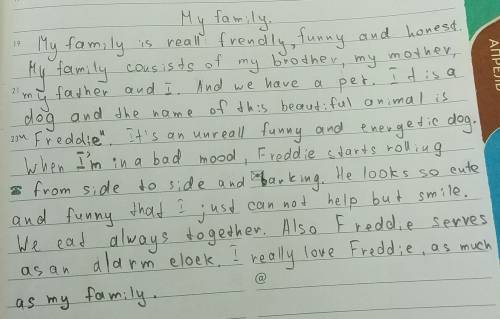 My family.
19 My family is reall frendly, funny and honest.
My family consists of my brother, my mother,
21 my father and I. And we have a pet. It is a
dog and the name of this beautiful animal is
23 "Freddie". It's an unreall funny and energetic dog.
When I'm in a bad mood, Freddie starts rolling
from side to side and barking. He looks so cute
and funny that I just can not help but smile.
We eat always together. Also Freddie serves
as an alarm clock. I really love Freddie, as much
as my family.
@
АПРЕЛЬ